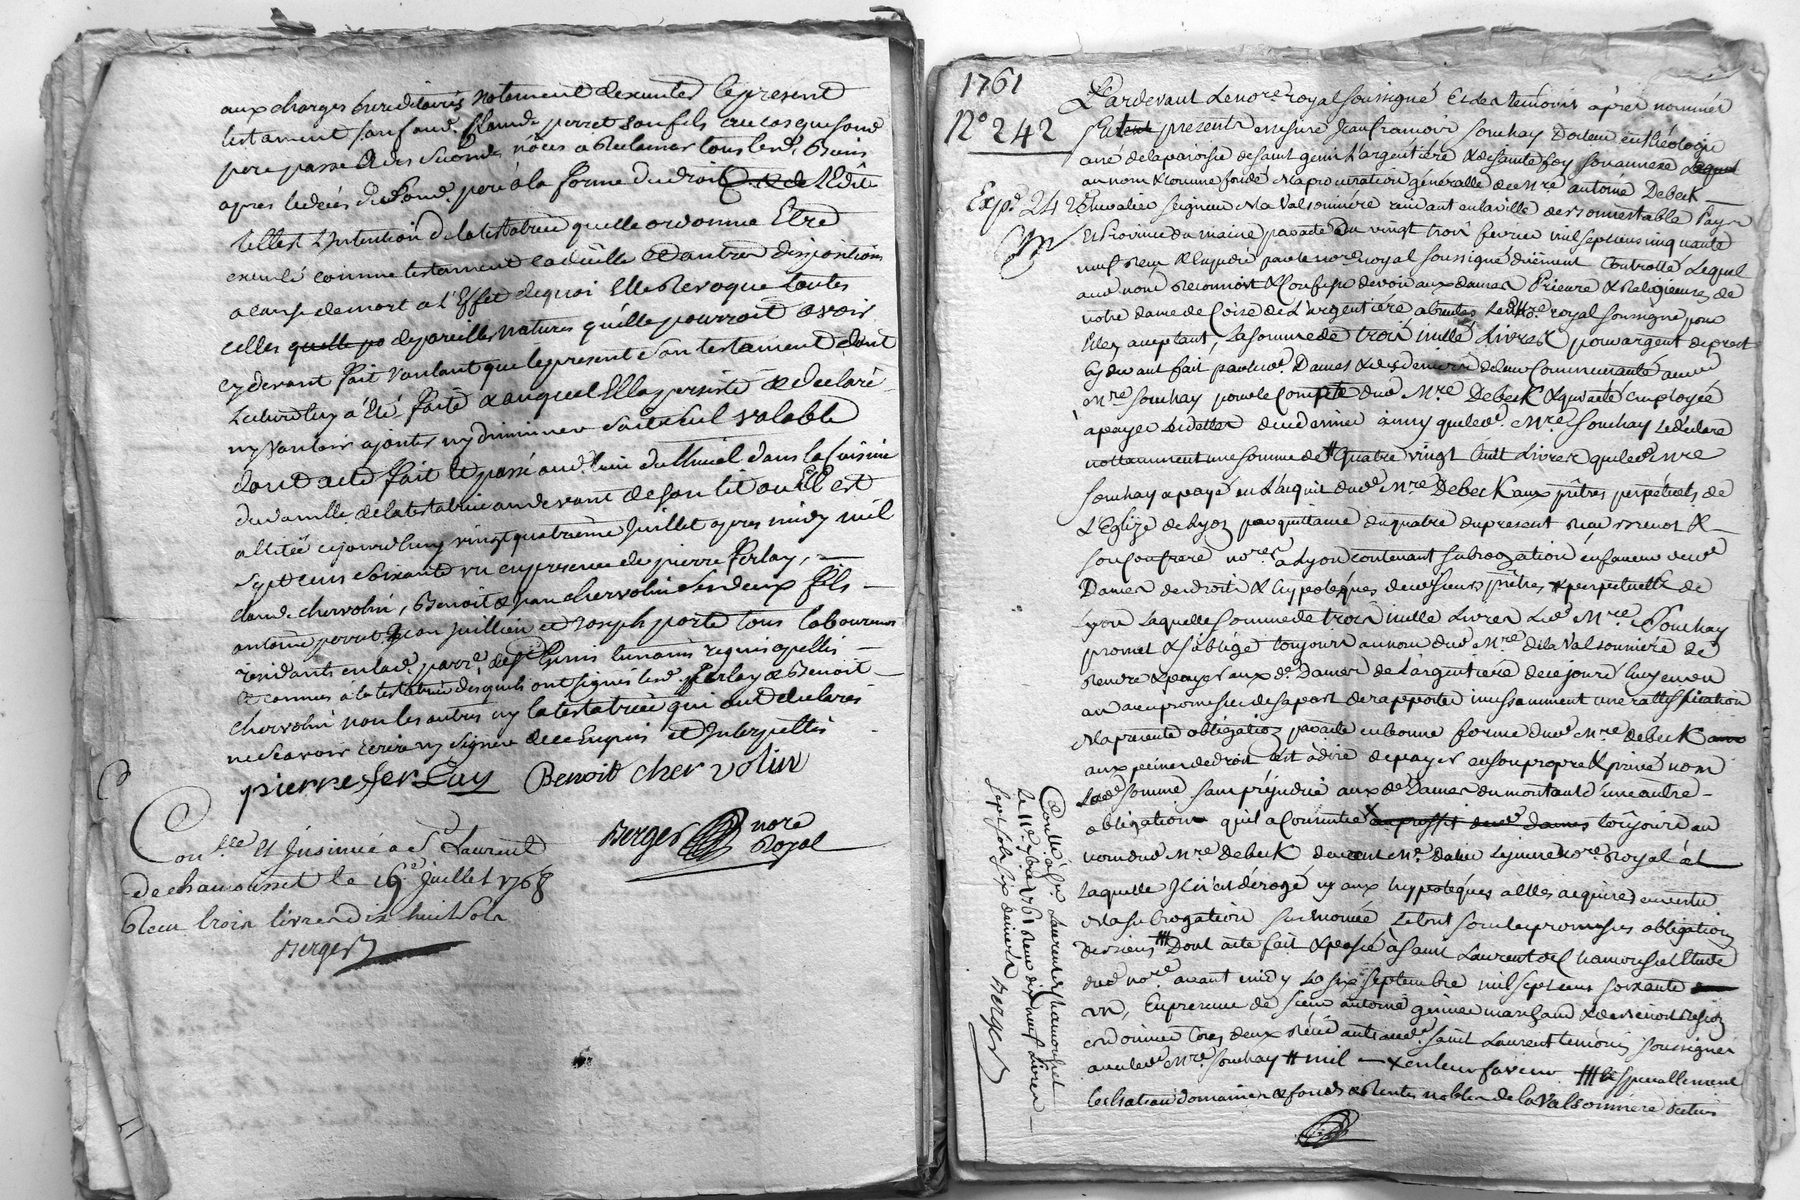 aux charges hereditaires notament d'executer le present
testament son feaud. Claude perret son fils au cas que sond
pere passe a des secondes nôces a reclamer tous lesd. Biens
apres le decés dud. sond. pere à la forme du droit & de l'Edit
telle est l'Intention de la testatrice quelle ordonne Etre
executé comme testament codicille ou autres dispositions
a cause de mort a l'Effet de quoi Elle Revoque toutes
celles quelle po de pareilles natures qu'elle pourroit avoir
cy devant fait voulant que le present son testament dont
Lecture luy a été faite & auquel Elle a persisté & declaré
ny vouloir ajouter ny diminuer soit seul valable
dont acte fait et passé aud. lieu du Thuel dans la cuisine
du domlle. de la testatrice au devant de son lit ou Elle est
allitée cejourd'huy vingt quatrieme Juillet apres midy mil
sept cens soixante un en presence de pierre ferlay,
claude chervolin, Benoit & jean chervolin ses deux fils
antoine perret jean Juillien et Joseph porte tous laboureurs
residants en lad. parre. de St. Genis temoins requis apellés
et connus a la testatrice desquels ont signés lesd. fferlay & Benoit
chervolin non les autres ny la testatrice qui ont declarés
ne sçavoir écrire ny signer de ce Enquis et Interpellés
pierre fer Lay Benoit cher volin
Berger nore
Royal
Conllé et Insinué a St Laurent
de chamousset le 16e Juillet 1768
Receu trois livres dix huit sols
Berger
1761
No 242
Expé 242
Pardevant Le nore royal soussigné Et des temoins après nommés
fut present messire Jean francois Souchay Docteur en théologie
curé de la paroisse de saint genis L'argentière & de sainte foy son annexe Lequel
au nom & comme fondé de la procuration généralle de Mre antoine Debeck
Chevalier seigneur de la Valsonniere residant en la ville de Bonnestable Pays
et Province du maine par acte du vingt trois fevrier mil sept cens cinquante
neuf Receu & Expedié par le nore royal soussigné duement Controllé Lequel
aud nom Reconnoit & Confesse devoir aux dames Prieure & Religieuses de
notre dame de Coise de L'argentiere absentes Led nore royal soussigné pour
Elles acceptant, La somme de trois mille Livres pour argent de prest
cy devant fait par lesd. Dames & des deniers de leur Communauté aud
Mre Souchay pour le Compte dud Mre Debeck & qui a été employée
à payer les dettes de ce dernier ainsy que led. Mre Souchay Le declare
nottamment une somme de # Quatre vingt huit Livres que led Mre
Souchay a payé en L'acquit dud Mre Debeck aux prêtres perpetuels de
L'Eglize de Lyon par quittance du quatre du present
son Confrere nores a Lyon contenant subrogation en faveur desd
Dames des droits & hypoteques desd sieurs prêtres perpetuels de
Lyon Laquelle somme de trois mille Livres Led Mre Souchay
promet & s'oblige toujours au nom dud Mre de la Valsonniere de
rendre & payer aux d. Dames de Largentiere de ce jourd huy en un
an avec promesse de sa part de rapporter incessamment une rattiffication
de la presente obligation passée en bonne forme dud Mre debeck aux
aux peines de droit c'est à dire de payer en son propre & privé nom
Lade somme sans préjudice aux de Dames du montant d'une autre
obligation qu'il a Consentie au proffit desd dames toujours au
nom dud Mre debeck devant Me notre Royal à
laquelle Il n'est dérogé ny aux hypoteques a Elles acquises en vertu
de la subrogation sus énoncée Le tout sous les promesses obligation
de biens ### Dont acte fait & passé à saint Laurent de Chamousset Etude
dud nore. avant midy Le six septembre mil sept cens soixante
un, En presence de sieur antoine marchand & de Benoit
cordonnier tous deux residants aud. saint Laurent temoins soussignés
avec led Mre Souchay # mil & en leur faveur ### Et specialement
le chateau domaines & fonds & Rentes nobles de la Valsonniere
Controllé à St Laurent de Chamousset
Le 11e 7bre 1761 Receu dix neuf Livres
sept sols six deniers Berger